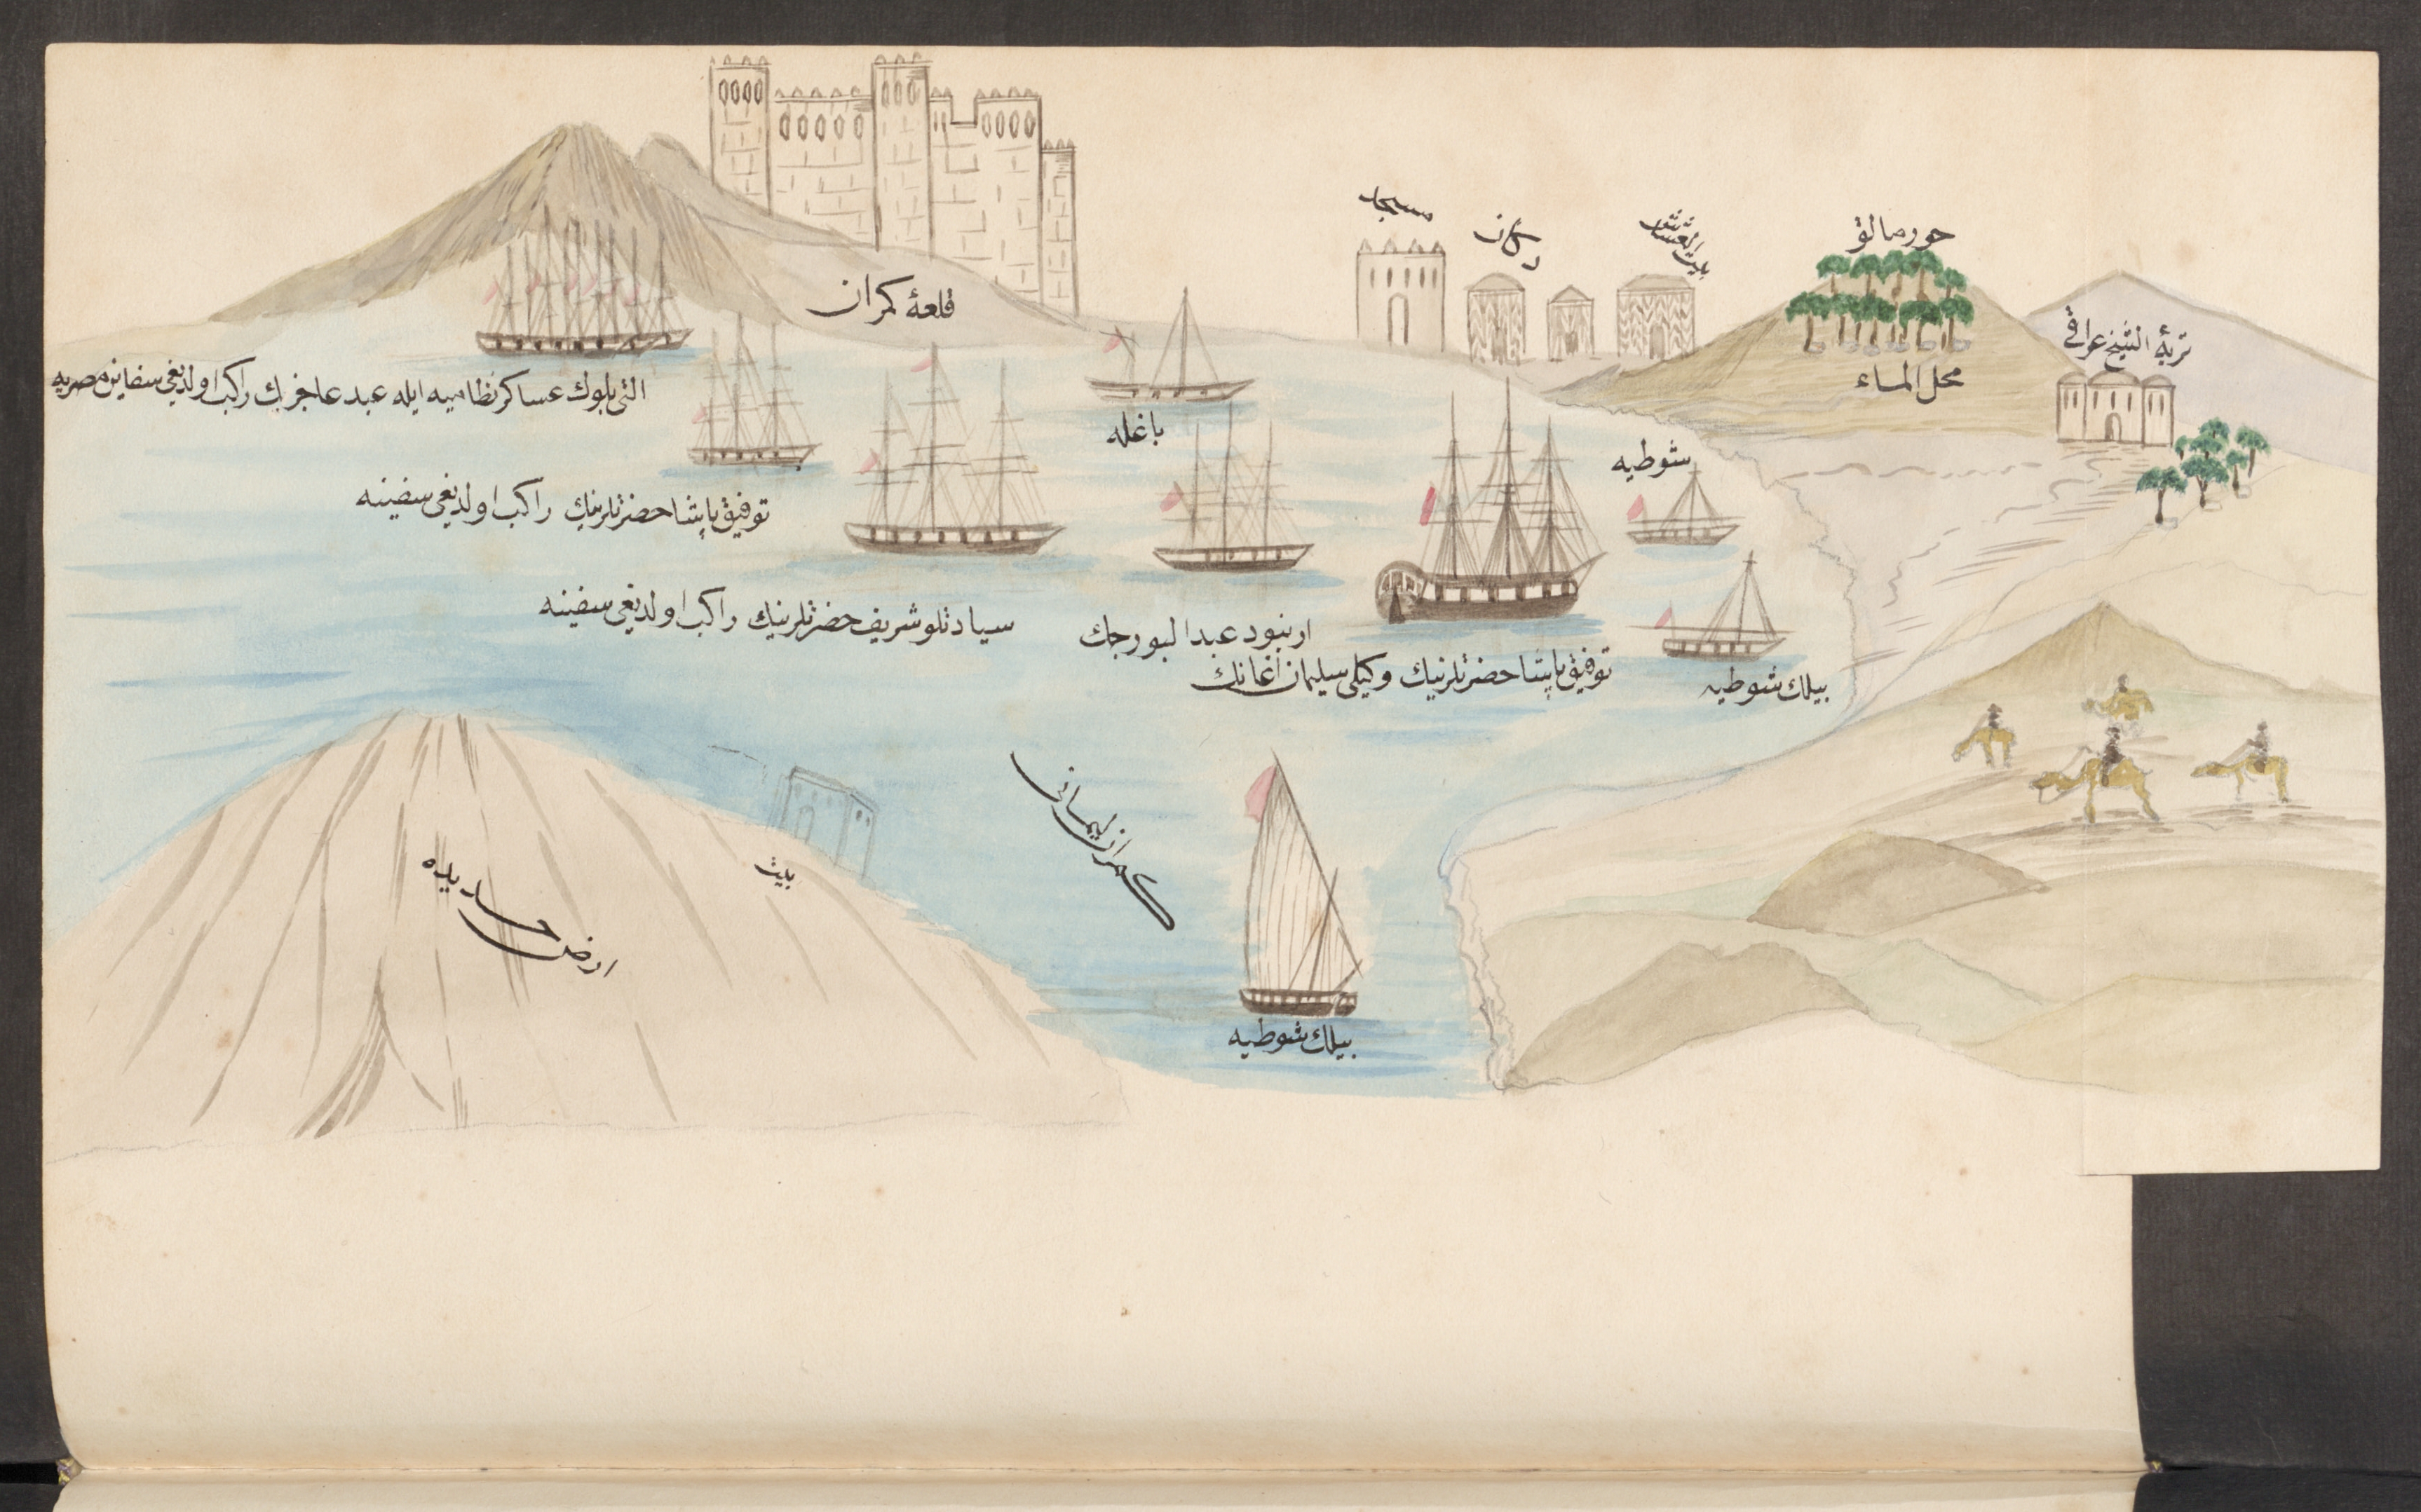 مسجد
دكان
بيت العشاش
حورمالق
محل الماء
تربهٔ الشيخ عراقى
قلعهٔ كمران
التى بلوك عساكر نظاميه ايله عبد عاجزيك راكب اولديغى سفاين مصريه
باغله
شوطيه
توفيق پاشا حضرتلرينك راكب اولديغى سفينه
سيادتلو شريف حضرتلرينك راكب اولديغى سفينه
ارنبود عبد
توفيق پاشا حضرتلرينك وكيلى سليمان اغانك
بيلك شوطيه
كمران ليمانى
بيت
ارض حديده
بيلك شوطيه